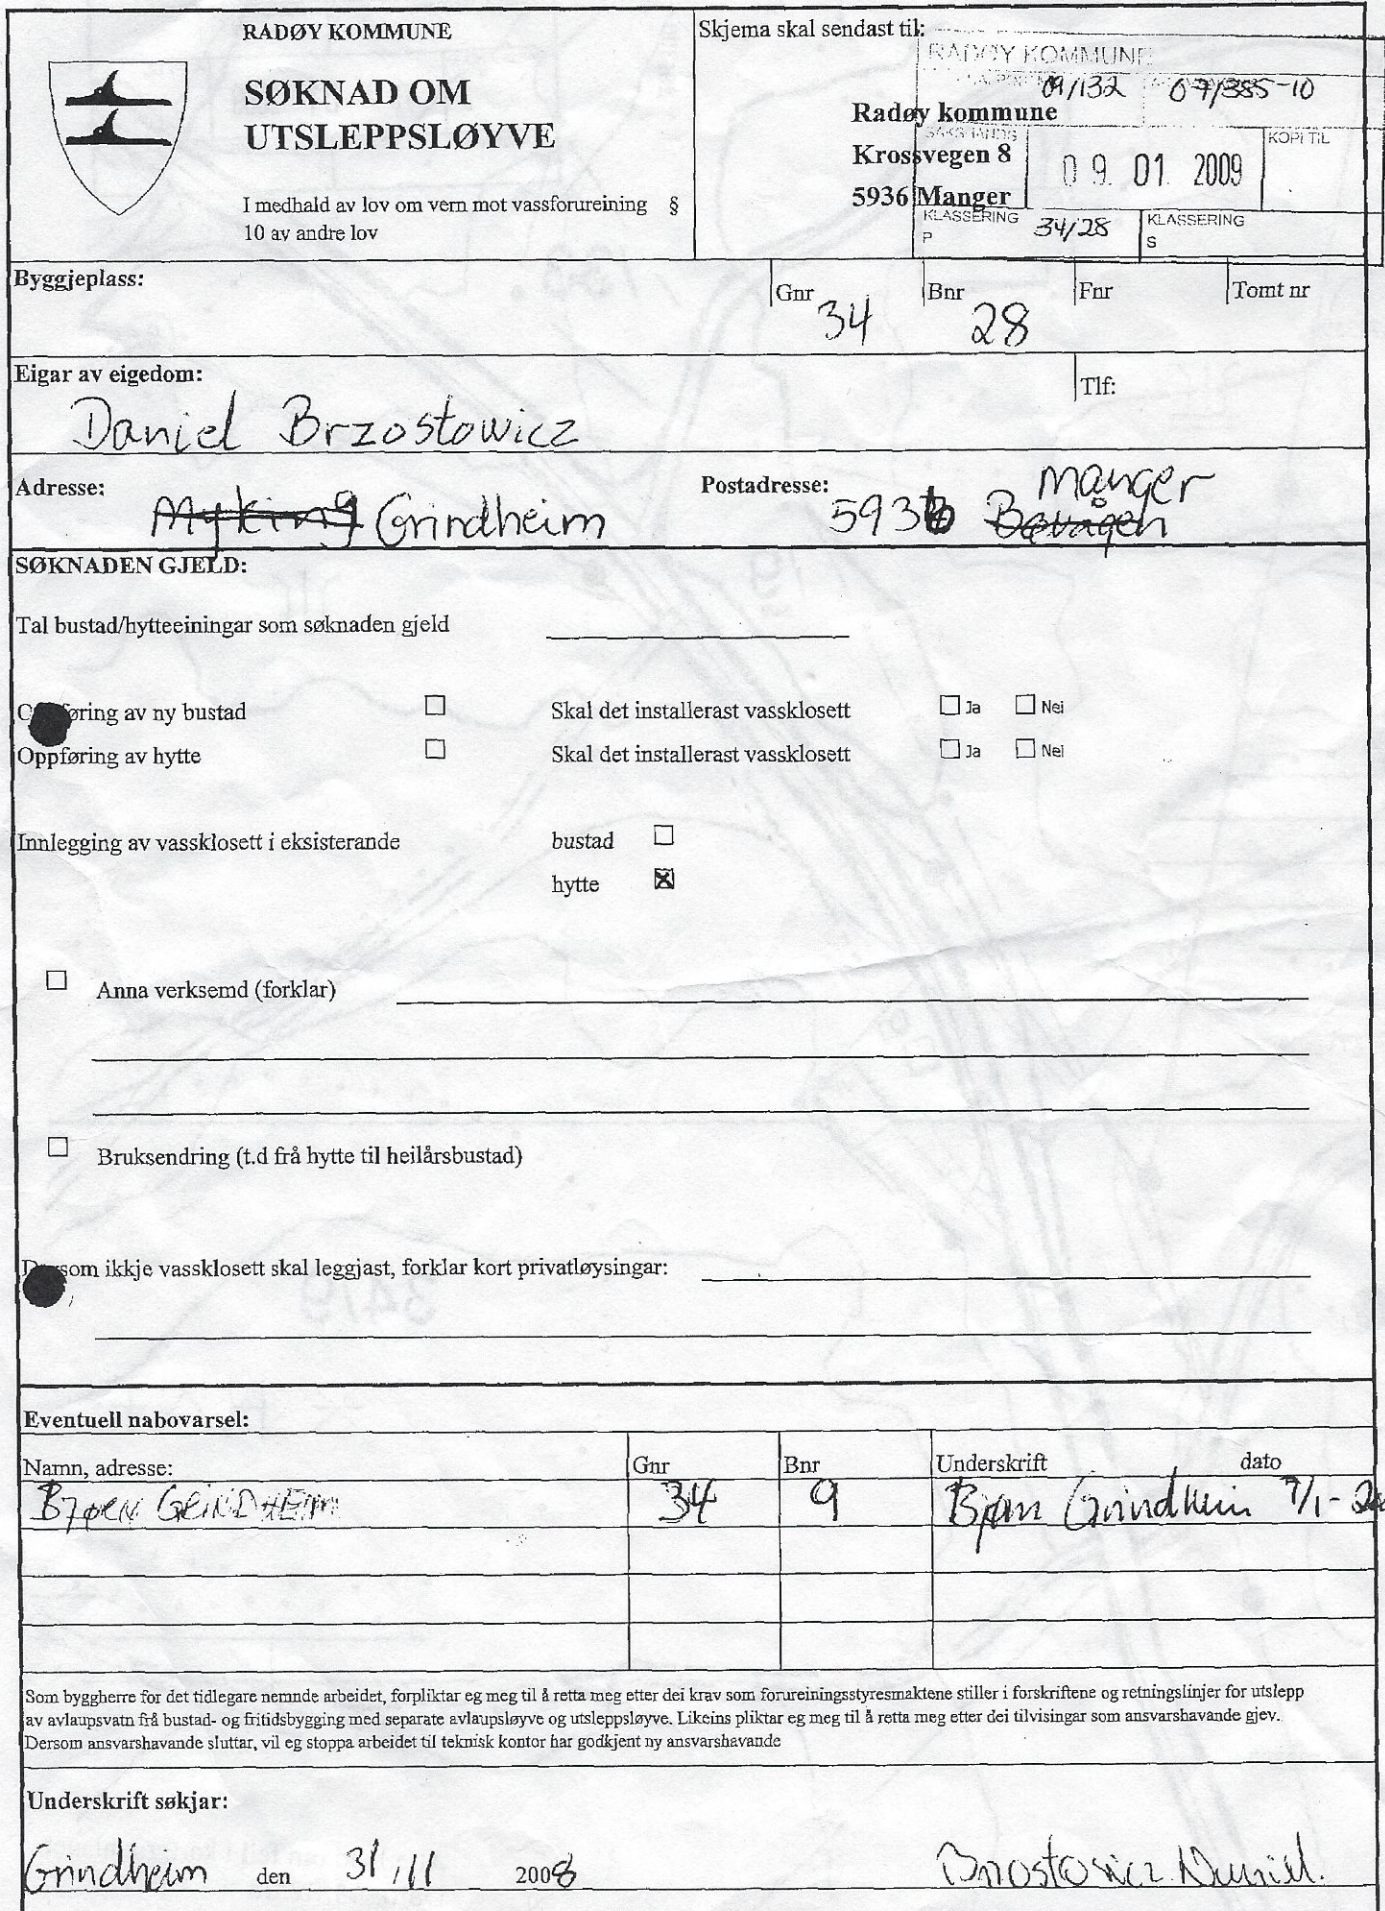 RADØY KOMMUNE
SØKNAD OM
UTSLEPPSLØYVE
I medhald av lov om vern mot vassforureining §
10 av andre lov
Skjema skal sendast til:
RADØY KOMMUNE
09/132 07/385-10
Radøy kommune
Krossvegen 8
5936 Manger
SAKSHANDS
09. 01. 2009
KOPI TIL
KLASSERING
P
34/28
KLASSERING
S
Byggjeplass:
Gnr 34
Bnr 28
Fnr
Tomt nr
Eigar av eigedom:
Tlf:
Daniel Brzostowicz
Adresse: Myking Grindheim
Postadresse: 5936 Bøvågen Manger
SØKNADEN GJELD:
Tal bustad/hytteeiningar som søknaden gjeld
Oppføring av ny bustad ☐ Skal det installerast vassklosett ☐ Ja ☐ Nei
Oppføring av hytte ☐ Skal det installerast vassklosett ☐ Ja ☐ Nei
Innlegging av vassklosett i eksisterande bustad ☐
hytte ☒
☐ Anna verksemd (forklar)
☐ Bruksendring (t.d frå hytte til heilårsbustad)
Dersom ikkje vassklosett skal leggjast, forklar kort privatløysingar:
Eventuell nabovarsel:
Namn, adresse: Gnr Bnr Underskrift dato
BJØRN GRINDHEIM 34 9 Bjørn Grindheim 7/1-20
Som byggherre for det tidlegare nemnde arbeidet, forpliktar eg meg til å retta meg etter dei krav som forureiningsstyresmaktene stiller i forskriftene og retningslinjer for utslepp
av avlaupsvatn frå bustad- og fritidsbygging med separate avlaupsløyve og utsleppsløyve. Likeins pliktar eg meg til å retta meg etter dei tilvisingar som ansvarshavande gjev.
Dersom ansvarshavande sluttar, vil eg stoppa arbeidet til teknisk kontor har godkjent ny ansvarshavande
Underskrift søkjar:
Grindheim den 31/11 2008 Brzostowicz Daniel.